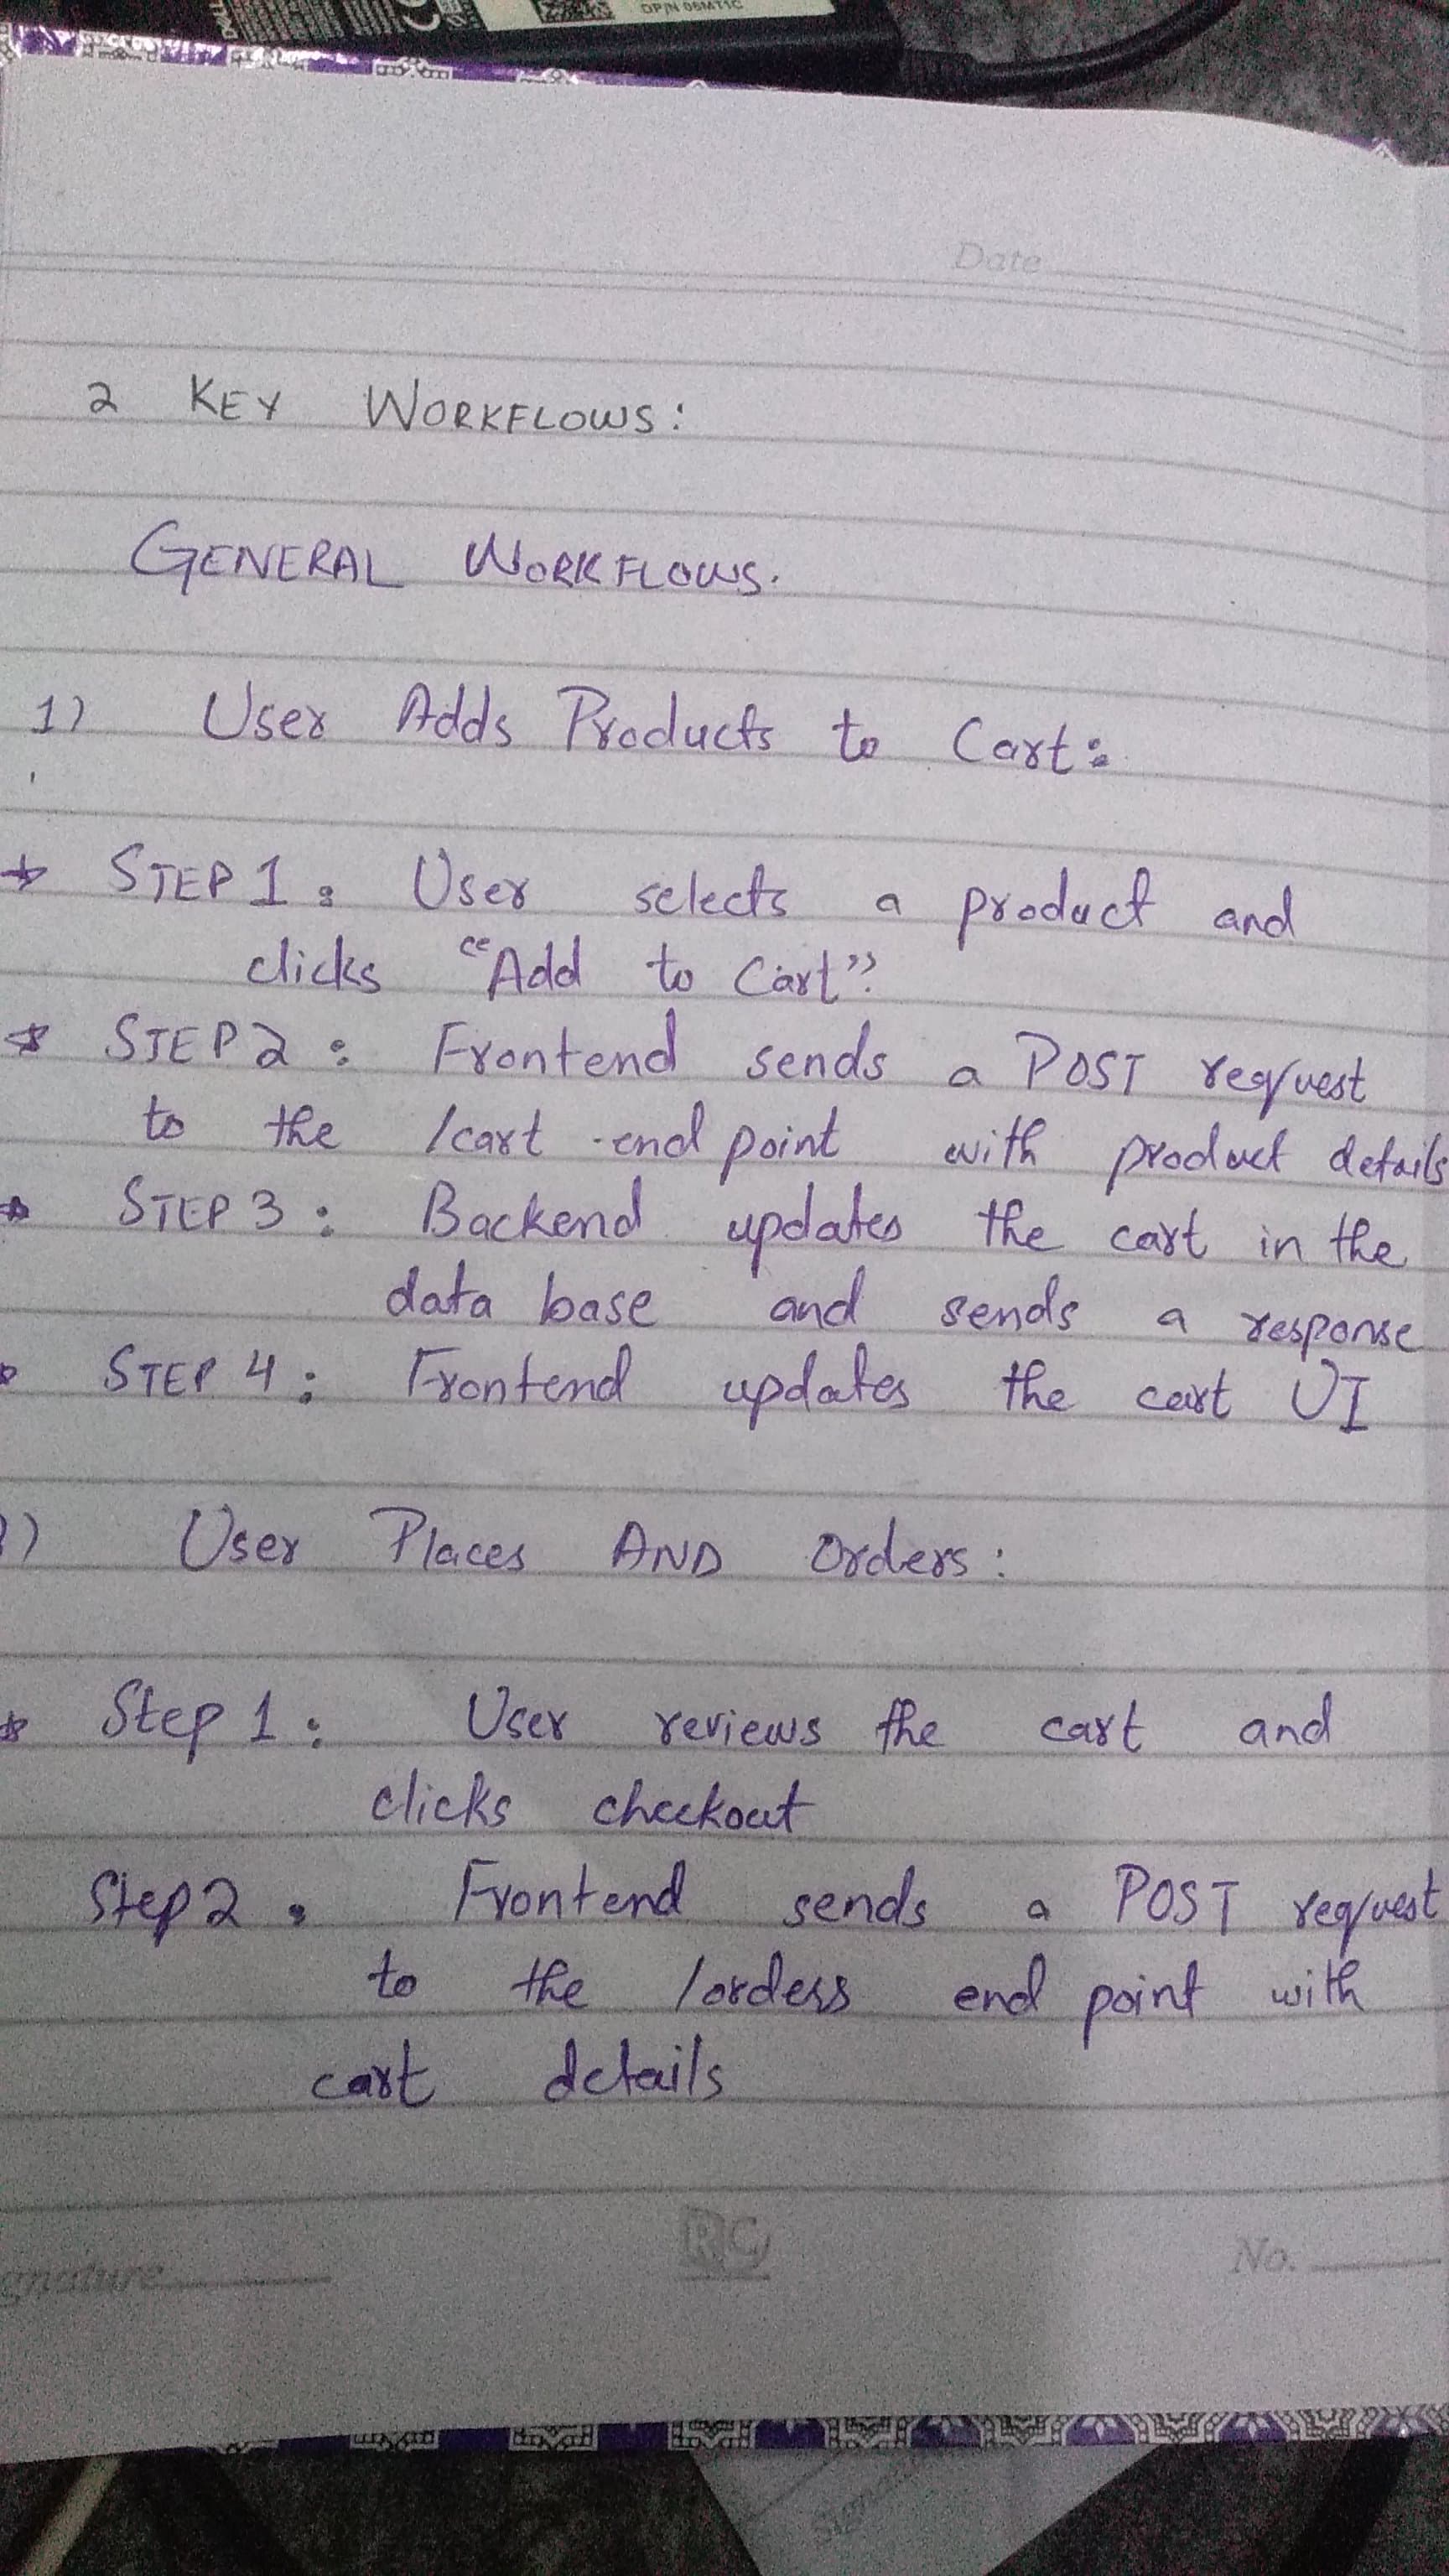 DP/N 06MT1C
Date
2 KEY WORKFLOWS:
GENERAL WORKFLOWS.
1) User Adds Products to Cart:
STEP 1: User selects a product and
clicks "Add to Cart"
STEP 2: Frontend sends a POST request
to the /cart end point with product details
STEP 3: Backend updates the cart in the
data base and sends a response
STEP 4: Frontend updates the cart UI
) User Places AND Orders:
Step 1: User reviews the cart and
clicks checkout
Step 2: Frontend sends a POST request
to the /orders end point with
cart details
gnature
RC
No.